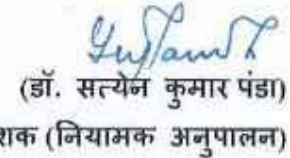 (डॉ. सत्येन कुमार पंडा)
शक (नियामक अनुपालन)